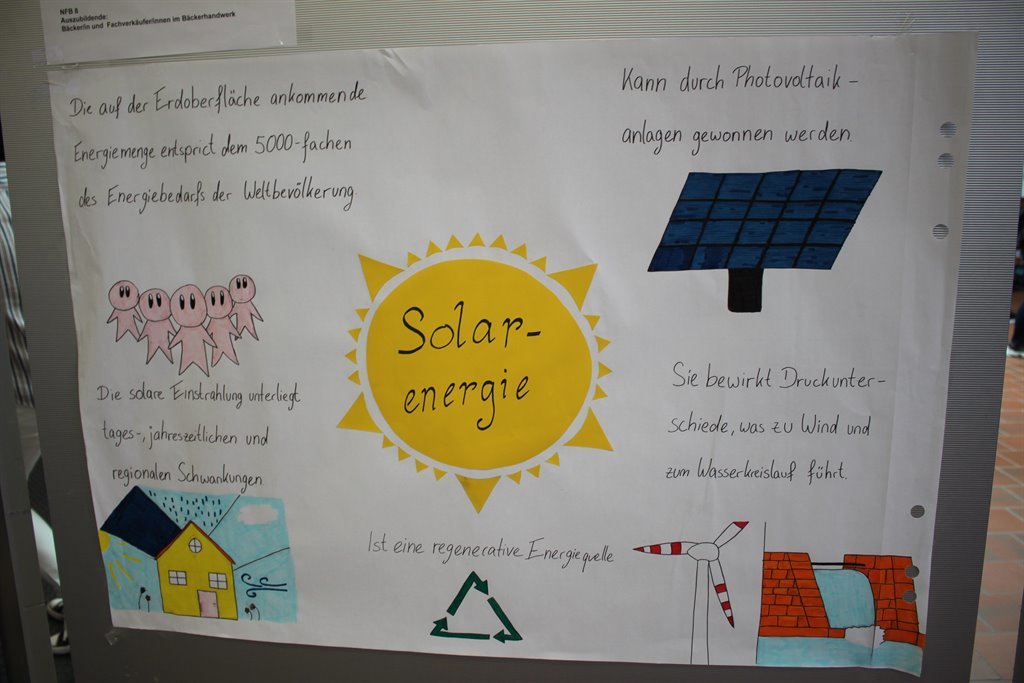 NFB 8
Auszubildende:
Bäcker/in und Fachverkäufer/innen im Bäckerhandwerk
Die auf der Erdoberfläche ankommende
Energiemenge entsprict dem 5000-fachen
des Energiebedarfs der Weltbevölkerung.
Kann durch Photovoltaik-
anlagen gewonnen werden.
Solar-
energie
Die solare Einstrahlung unterliegt
tages-, jahreszeitlichen und
regionalen Schwankungen.
Sie bewirkt Druckunter-
schiede, was zu Wind und
zum Wasserkreislauf führt.
Ist eine regenerative Energiequelle